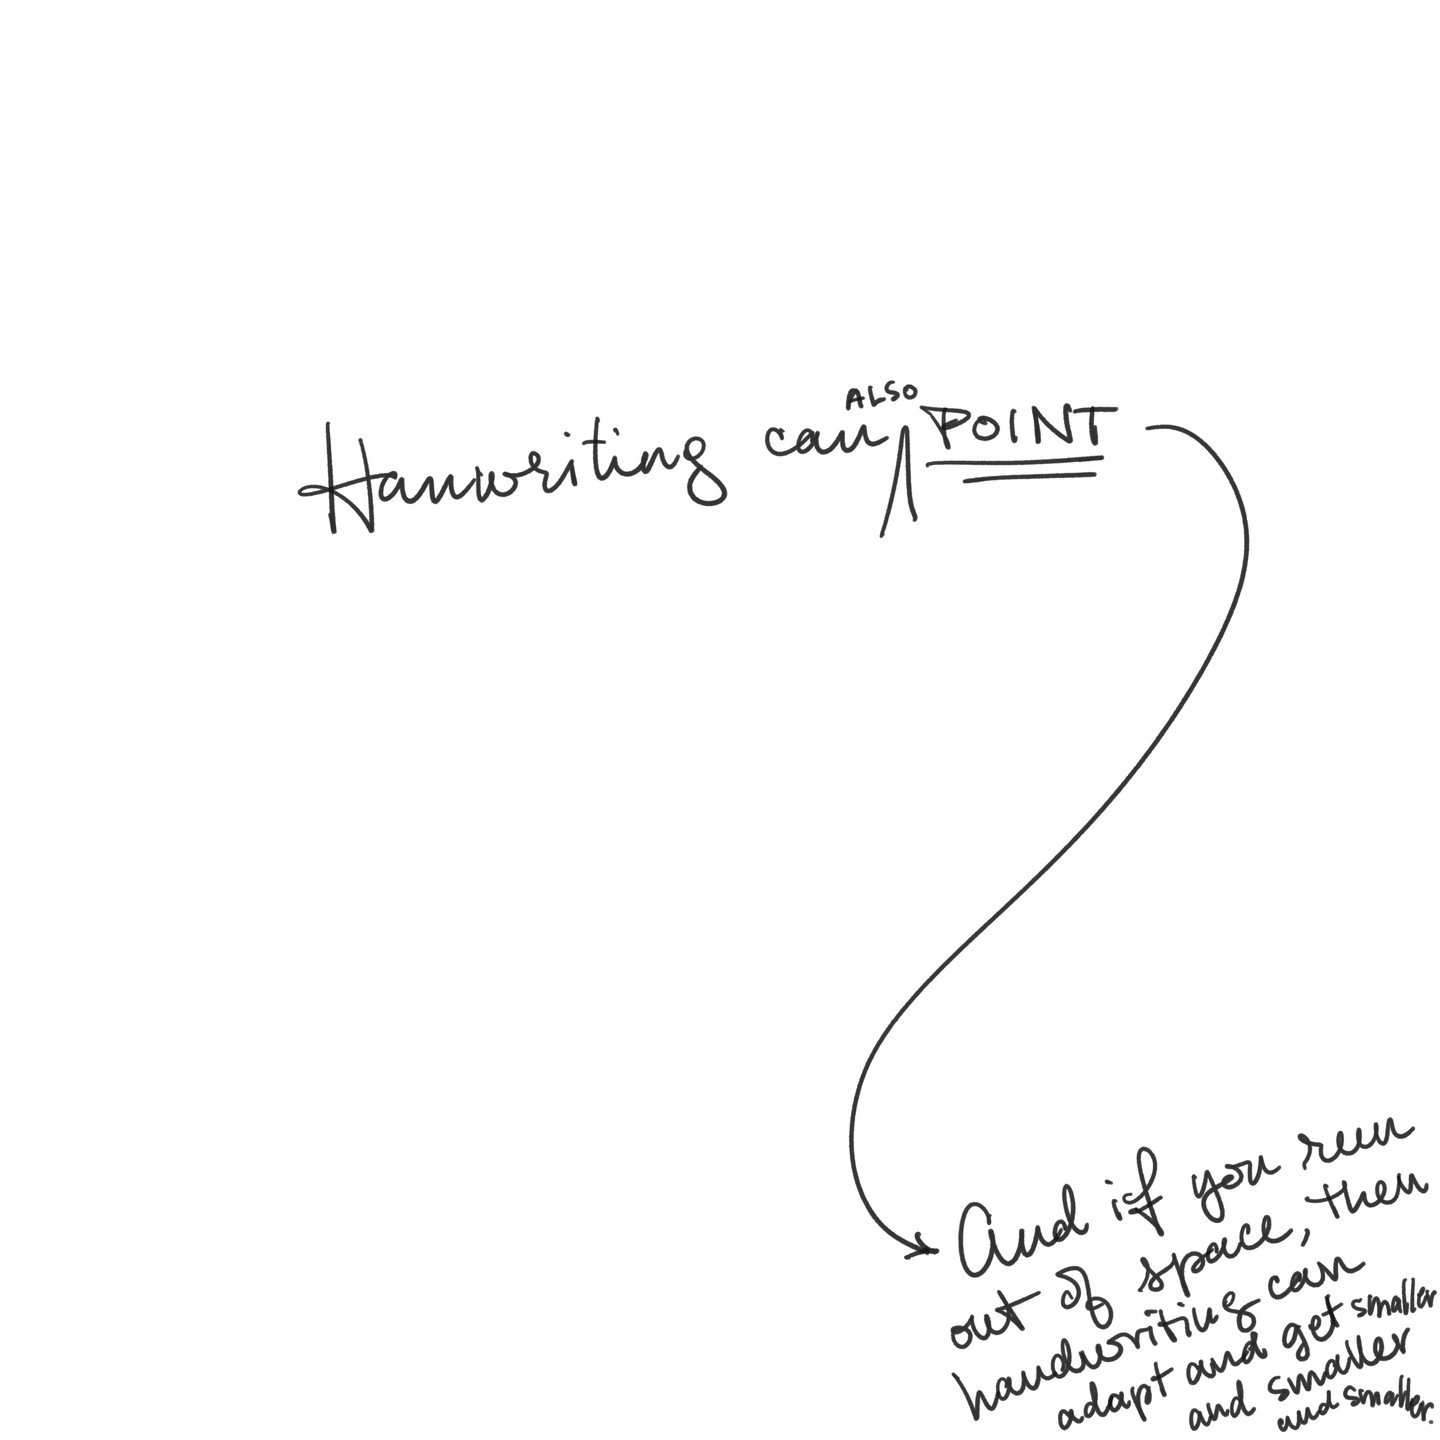 Hanwriting can ALSO POINT
And if you run
out of space, then
handwriting can
adapt and get smaller
and smaller
and smaller.